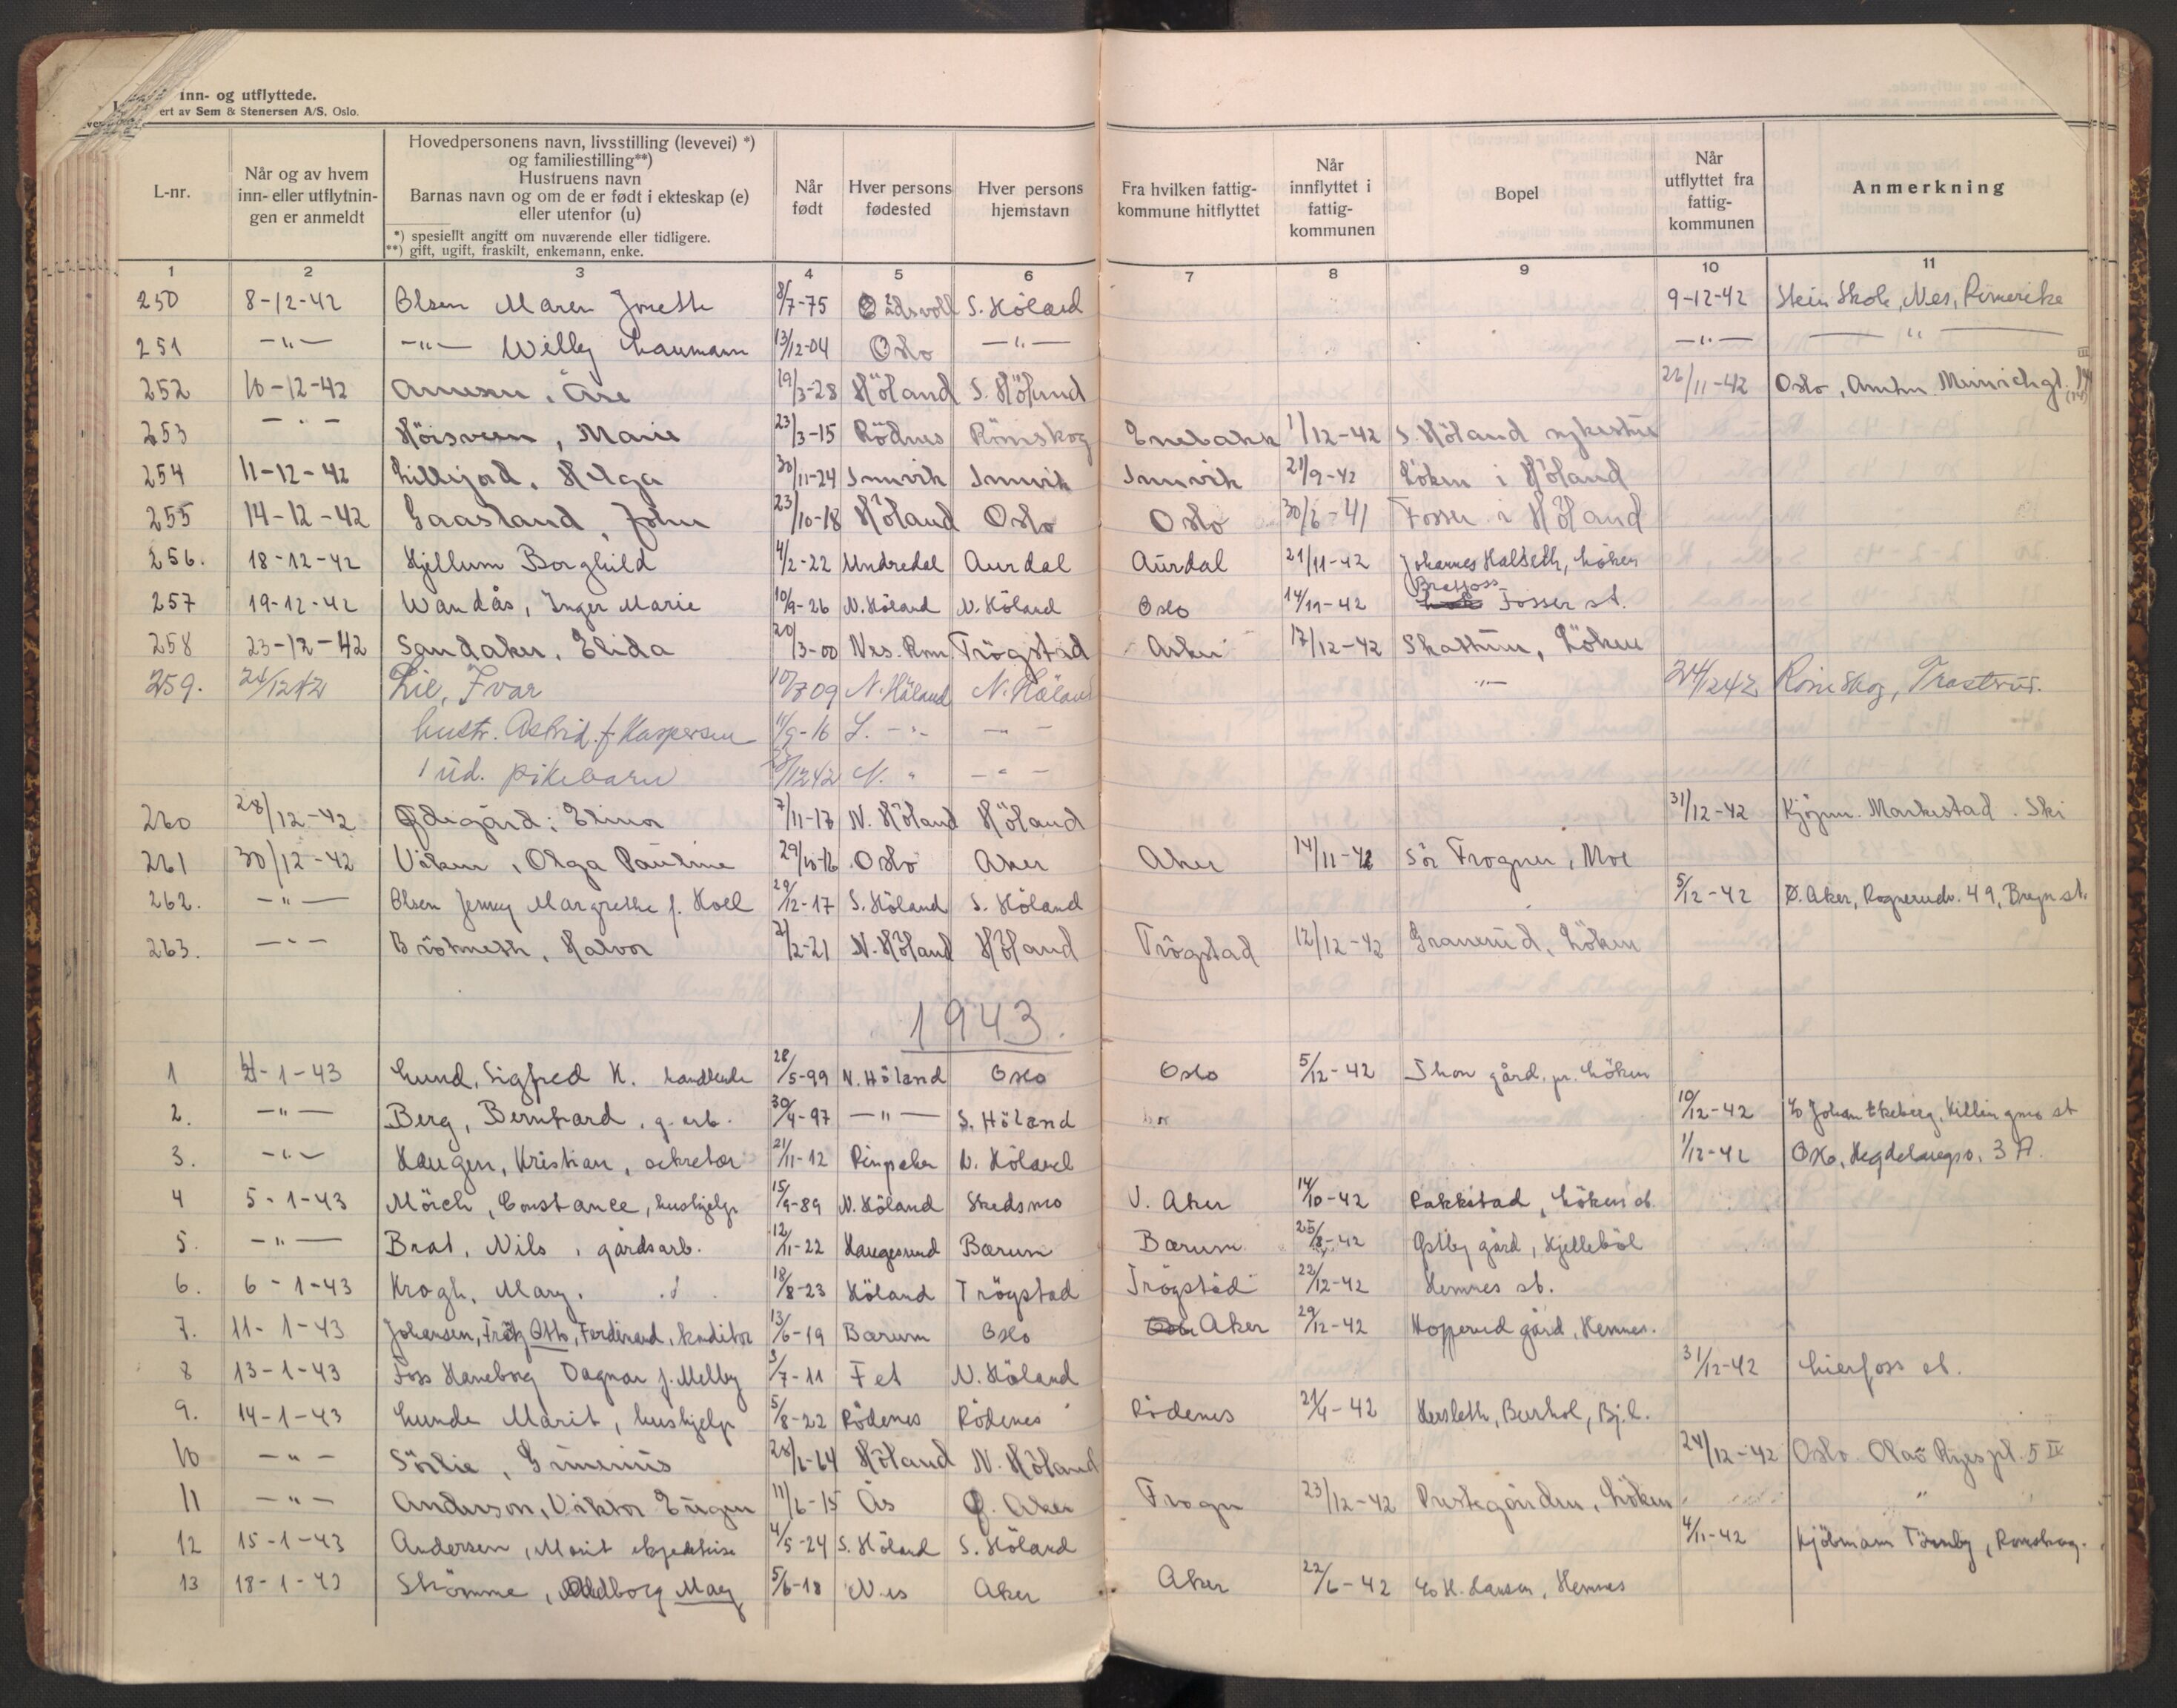 inn- og utflyttede.
ert av Sem & Stenersen A/S, Oslo.
L-nr. | Når og av hvem inn- eller utflytnin-gen er anmeldt | Hovedpersonens navn, livsstilling (levevei) *) og familiestilling**) Hustruens navn Barnas navn og om de er født i ekteskap (e) eller utenfor (u) *) spesiellt angitt om nuværende eller tidligere. **) gift, ugift, fraskilt, enkemann, enke. | Når født | Hver persons fødested | Hver persons hjemstavn | Fra hvilken fattig-kommune hitflyttet | Når innflyttet i fattig-kommunen | Bopel | Når utflyttet fra fattig-kommunen | Anmerkning
1 2 3 4 5 6 7 8 9 10 11
250 8-12-42 Olsen Maren Jonette 8/7-75 Eidsvoll S. Höland 9-12-42 Stein Skole, Nes, Romerike
251 -"- -"- Willy Laumann 13/12-04 Oslo -"- -"- "
252 10-12-42 Arnesen, Åse 19/3-28 Höland S. Höland 26/11-42 Oslo,
253 -"- Marie 23/3-15 Rödnes Römskog Enebakk 1/12-42 S. Höland sykestue
254 11-12-42 Lillejord, Helga 30/11-24 Innvik Innvik Innvik 21/9-42 Löken i Höland
255 14-12-42 Gaasland, John 23/10-18 Höland Oslo Oslo 30/6-41 Fosser i Höland
256. 18-12-42 Kjellum Borghild 4/2-22 Undredal Aurdal Aurdal 21/11-42 Johannes Halseth, Löken
257 19-12-42 Wandås, Inger Marie 10/9-26 N. Höland N. Höland Oslo 14/11-42 Bratfoss Fosser st.
258 23-12-42 Sandaker, Elida 20/3-00 Nes. Rom Trögstad Asker 17/12-42 Skattum, Löken
259. 24/1242 Lie, Ivar 10/709 N. Höland N. Höland -"- 24/1242 Römskog, Trastrud.
hustr. Astrid f. Kaspersen 11/9-16 S. -"- -"-
1 ud. pikebarn /1242 N. " -"-
260 28/12-42 Ødegård, Elinor 7/11-17 N. Höland Höland 31/12-42 Kjøpm. Markestad. Ski
261 30/12-42 Viken, Olga Pauline 29/10-16 Oslo Aker Aker 14/11-42 Sör Frogner, Moe
262. -"- Olsen Jenny Margrethe f. Holl 29/12-17 S. Höland S. Höland 5/12-42 Ø. Aker, Rognerudv. 49, Bryn st.
263. -"- Halvor 2/2-21 N. Höland Höland Trögstad 12/12-42 Granerud, Löken
1943.
1 4-1-43 Lund, Sigfred K. handlende 28/5-99 N. Höland Oslo Oslo 5/12-42 Thon gård, pr. Löken
2. -"- Berg, Bernhard, g. arb. 30/4-97 -"- S. Höland 10/12-42 c/o Johan Ekeberg, Killingmo st
3. -"- Haugen, Kristian, sekretær 21/11-12 Ringsaker N. Höland 1/12-42 Oslo, Hegdehaugsv. 3 A.
4 5-1-43 Mörch, Constance, hushjelp 15/9-89 N. Höland Skedsmo V. Aker 14/10-42 Rakkstad, Löken st.
5. -"- Brat, Nils, gårdsarb. 12/11-22 Haugesund Bærum Bærum 25/8-42 Østby gård, Kjelleböl
6. 6-1-43 Krogh, Mary. 18/8-23 Höland Trögstad Trögstad 22/12-42 Hemnes st.
7. 11-1-43 Johansen, Fritz Otto, Ferdinand, konditor 13/6-19 Bærum Oslo Oslo Aker 29/12-42 Kopperud gård, Hemnes.
8 13-1-43 Foss Haneborg Dagmar f. Melby 3/7-11 Fet N. Höland 31/12-42 Lierfoss st.
9. 14-1-43 Lunde Marit, hushjelp 5/8-22 Rödenes Rödenes Rödenes 21/4-42 Hersleth, Burhol, Bj.l.
10 -"- Sörlie, Gunerius 28/6-64 Höland N. Höland 24/12-42 Oslo. Olav Ryes pl. 5 IV
11 -"- Anderson, Viktor Eugen 11/6-15 Ås Ø. Aker Frogn 23/12-42 Prestegården, Löken "
12 15-1-43 Andersen, Marit ekspeditrise 4/5-24 S. Höland S. Höland 4/11-42 Kjöbmann Tömby, Römskog.
13 18-1-43 Skömme, Oddborg May 5/6-18 Nes Aker Aker 22/6-42 c/o H. Larsen, Hemnes